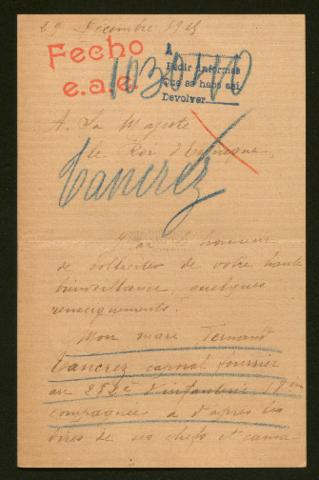 29 Décembre 1915
Fecho
e.a.e.
A
Pedir informes
que se hace así
Devolver
A Sa Majesté
le Roi d'Espagne,
Tancrez
J'ai l'honneur
de solliciter de votre haute
bienveillance, quelques
renseignements.
Mon mari Fernand
Tancrez caporal fourrier
au 282e d'infanterie, 18em
compagnie a d'après les
dires de ses chefs et cama-